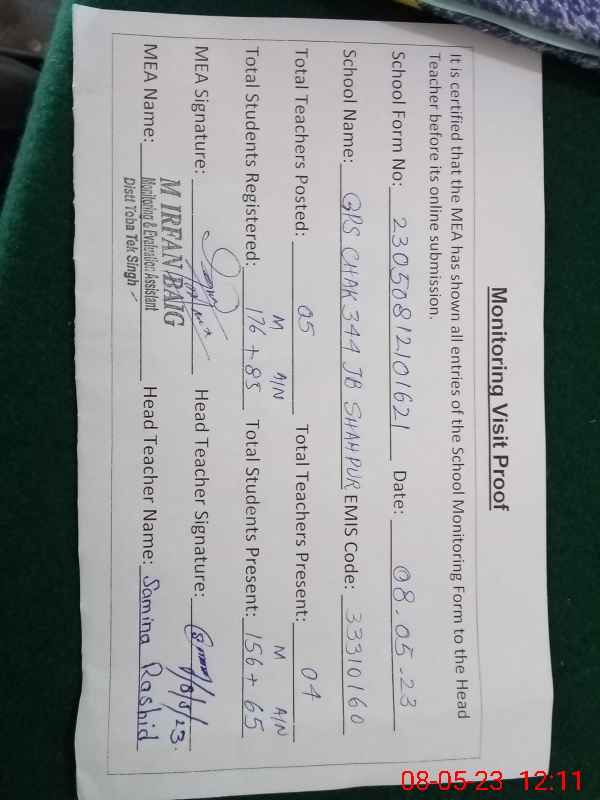 Monitoring Visit Proof
It is certified that the MEA has shown all entries of the School Monitoring Form to the Head
Teacher before its online submission.
School Form No: 23050812101621 Date: 08.05.23
School Name: GPS CHAK 344 JB SHAHPUR EMIS Code: 33310160
Total Teachers Posted: 05 Total Teachers Present: 04
M A/N M A/N
Total Students Registered: 176 + 85 Total Students Present: 156 + 65
MEA Signature: Head Teacher Signature: 8/5/23.
M IRFAN BAIG
MEA Name: Monitoring & Evaluation Assistant Head Teacher Name: Samina Rashid
Distt Toba Tek Singh
08-05-23 12:11